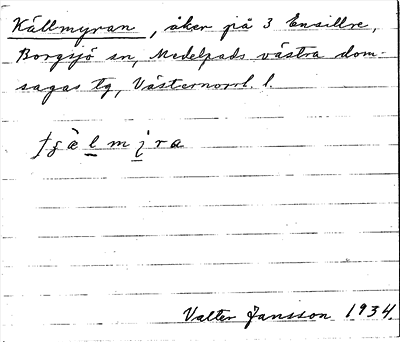 Källmyran, åker på 3 Ensillre,
Borgsjö sn, Medelpads västra dom-
sagas tg, Västernorrl. l.
Valter Jansson 1934.